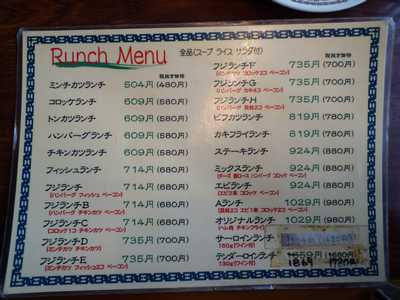 Runch Menu
全品(スープ ライス サラダ付)
税抜き価格
ミンチカツランチ 504円(480円)
コロッケランチ 609円(580円)
トンカツランチ 609円(580円)
ハンバーグランチ 609円(580円)
チキンカツランチ 609円(580円)
フィッシュランチ 714円(680円)
フジランチA 714円(680円)
(ハンバーグ フィッシュ ベーコン)
フジランチB 714円(680円)
(ハンバーグ チキンカツ ベーコン)
フジランチC 714円(680円)
(コロッケ1コ チキンカツ ベーコン)
フジランチD 735円(700円)
(ミンチカツ チキンカツ)
フジランチE 735円(700円)
(ミンチカツ フィッシュ ベーコン)
税抜き価格
フジランチF 735円(700円)
(ミンチカツ コロッケ ベーコン)
フジランチG 735円(700円)
(ハンバーグ ベーコン)
フジランチH 735円(700円)
(ハンバーグ コロッケ ベーコン)
ビフカツランチ 819円(780円)
カキフライランチ 819円(780円)
ステーキランチ 924円(880円)
ミックスランチ 924円(880円)
エビランチ 924円(880円)
Aランチ 1029円(980円)
オリジナルランチ 1029円(980円)
サーロインランチ
150g(ワイン付)
テンダーロインランチ 1869
130g(ワイン付)